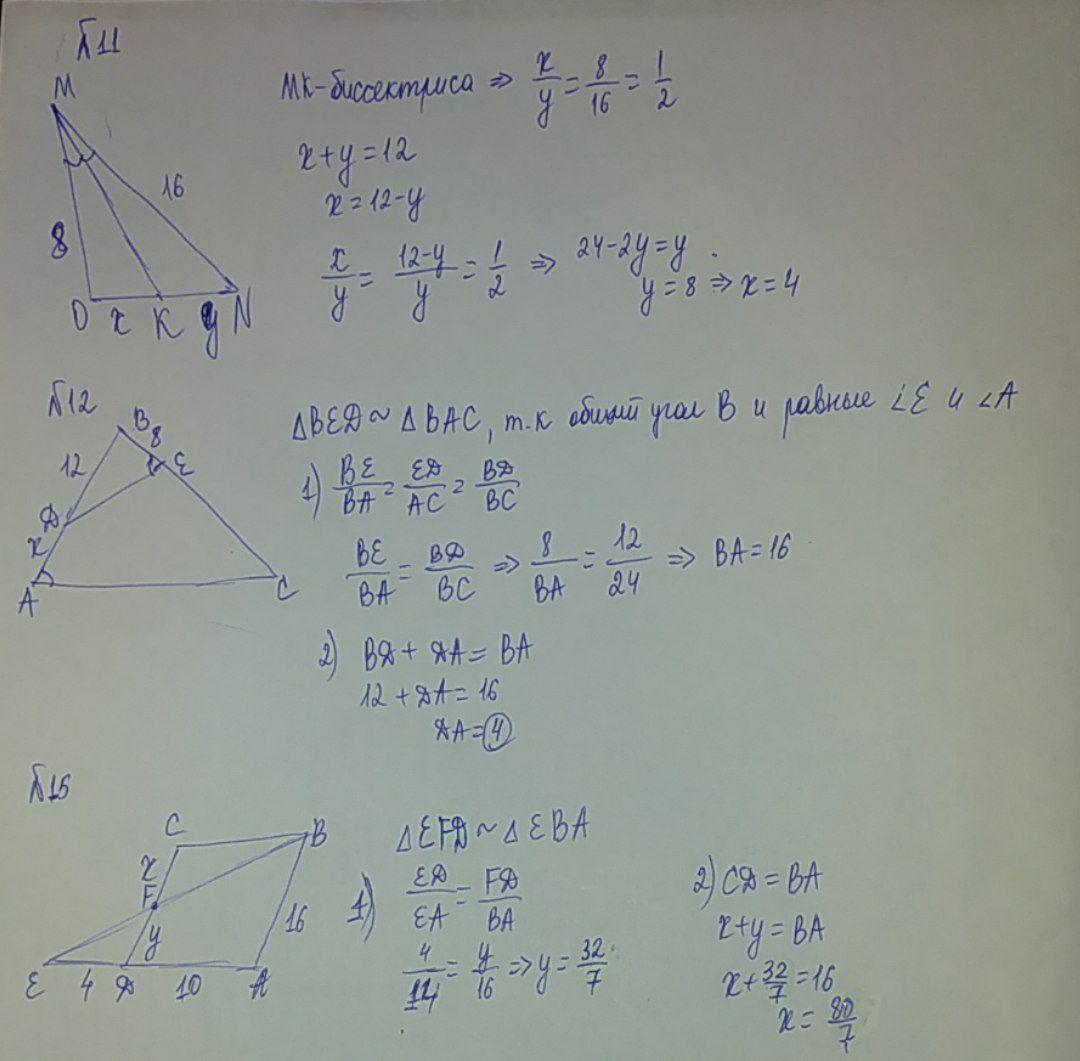 №11
M
8
16
O x K y N
MK-биссектриса ⇒ x/y = 8/16 = 1/2
x+y=12
x=12-y
x/y = (12-y)/y = 1/2 ⇒ 24-2y=y
y=8 ⇒ x=4
№12
B
8
12
E
D
x
A
C
△BED ~ △BAC, т.к общий угол B и равные ∠E и ∠A
1) BE/BA = ED/AC = BD/BC
BE/BA = BD/BC ⇒ 8/BA = 12/24 ⇒ BA=16
2) BD + DA = BA
12 + DA = 16
DA = 4
№15
C
B
x
F
y
16
E 4 D 10 A
△EFD ~ △EBA
1) ED/EA = FD/BA
4/14 = y/16 ⇒ y = 32/7
2) CD = BA
x+y = BA
x + 32/7 = 16
x = 80/7